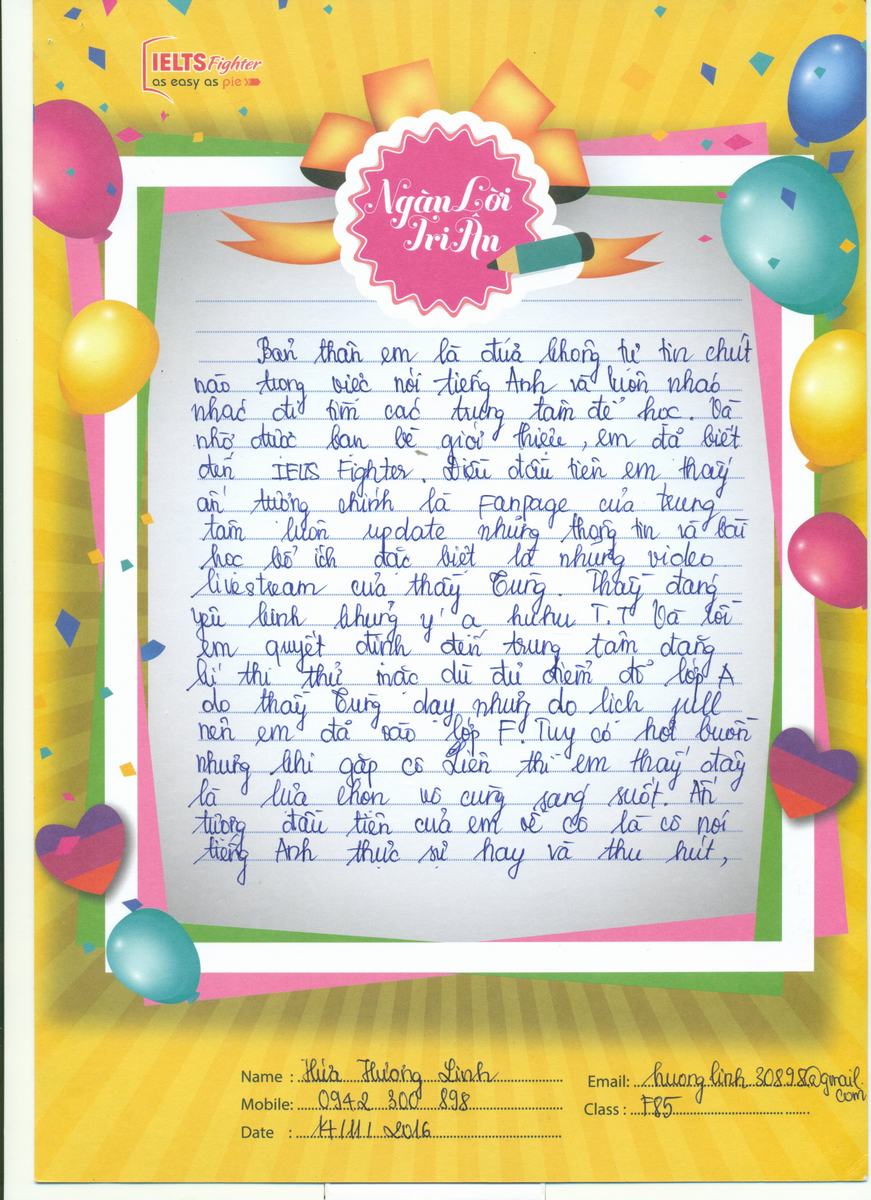 IELTS Fighter
as easy as pie
Ngàn Lời
Tri Ân
Bản thân em là đứa không tự tin chút
nào trong việc nói tiếng Anh và luôn nhao
nhác đi tìm các trung tâm để học. Và
nhờ được bạn bè giới thiệu, em đã biết
đến IELTS Fighter. Điều đầu tiên em thấy
ấn tượng chính là Fanpage của trung
tâm luôn update những thông tin và bài
học bổ ích đặc biệt là những video
livestream của thầy Tùng. Thầy đáng
yêu kinh khủng ý ạ huhu T.T Và rồi
em quyết định đến trung tâm đăng
kí thi thử mặc dù đủ điểm đỗ lớp A
do thầy Tùng dạy nhưng do lịch full
nên em đã vào lớp F. Tuy có hơi buồn
nhưng khi gặp cô Liên thì em thấy đây
là lựa chọn vô cùng sáng suốt. Ấn
tượng đầu tiên của em về cô là cô nói
tiếng Anh thực sự hay và thu hút,
Name : Hứa Hương Linh
Email: huonglinh30898@gmail.
com
Mobile: 0942 300 898
Class : F85
Date : 14/11/2016